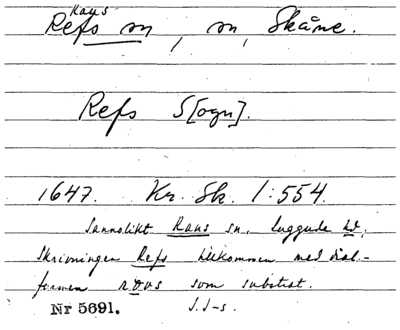 Raus
Refs sn, sn, Skåne.
Refs S[ogn].
1647. Kr. Sk. 1:554.
Sannolikt Raus sn, Luggude hd.
Skrivningen Refs tillkommen med dial-
formen røvs som substrat.
Nr 5691. S.I-s.